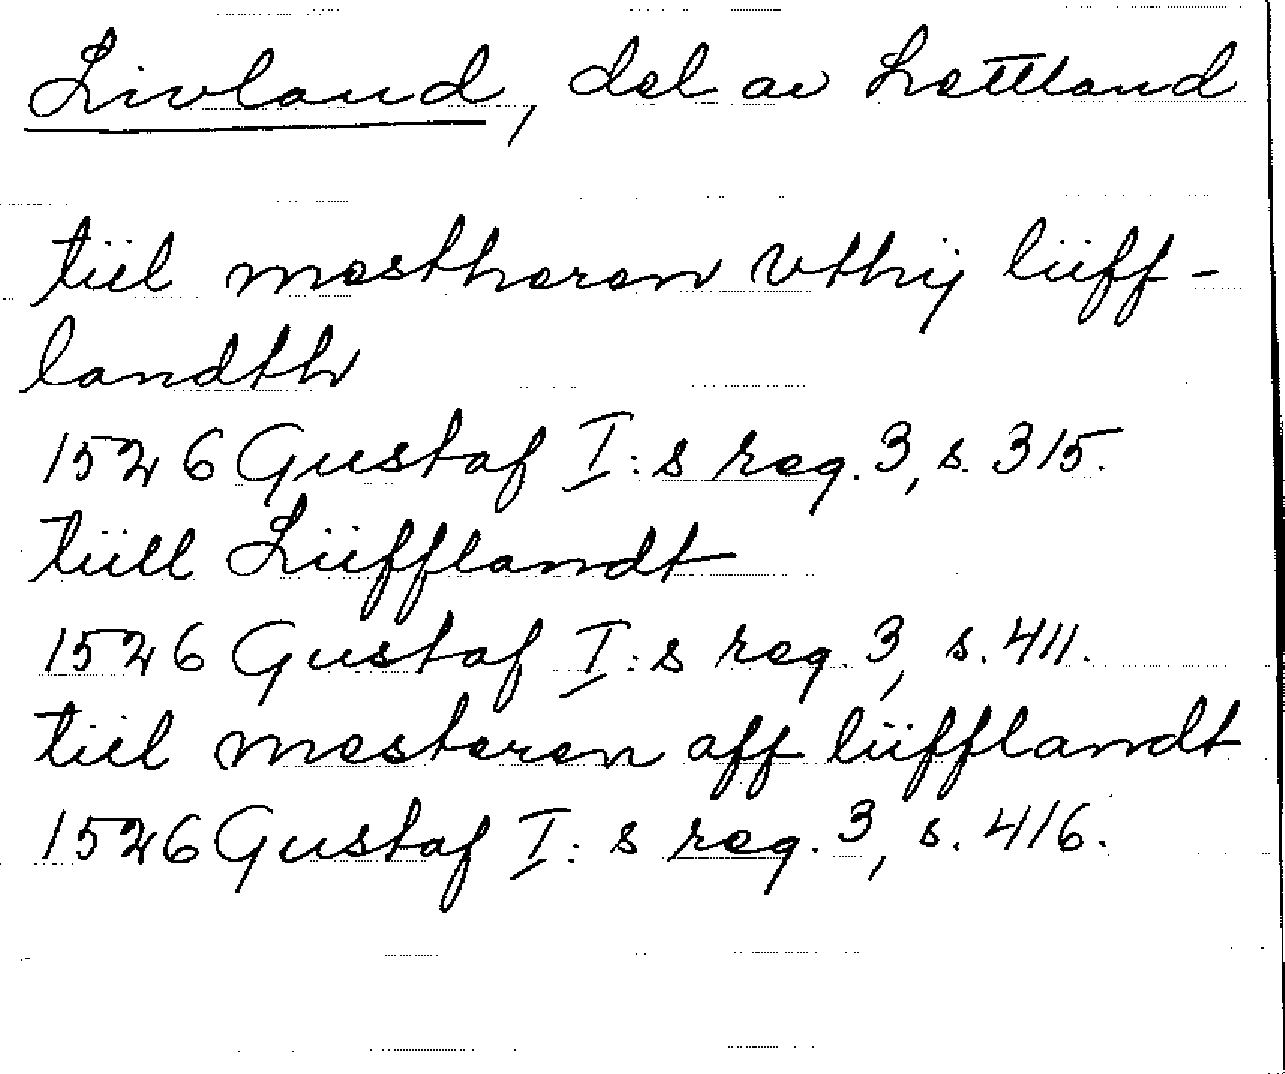 Livland, del av Lettland
tiil mestheren vthij liiff-
landth
1526 Gustaf I:s reg. 3, s. 315.
tiill Liifflandt
1526 Gustaf I:s reg. 3, s. 411.
tiil mesteren aff liifflandt
1526 Gustaf I:s reg. 3, s. 416.